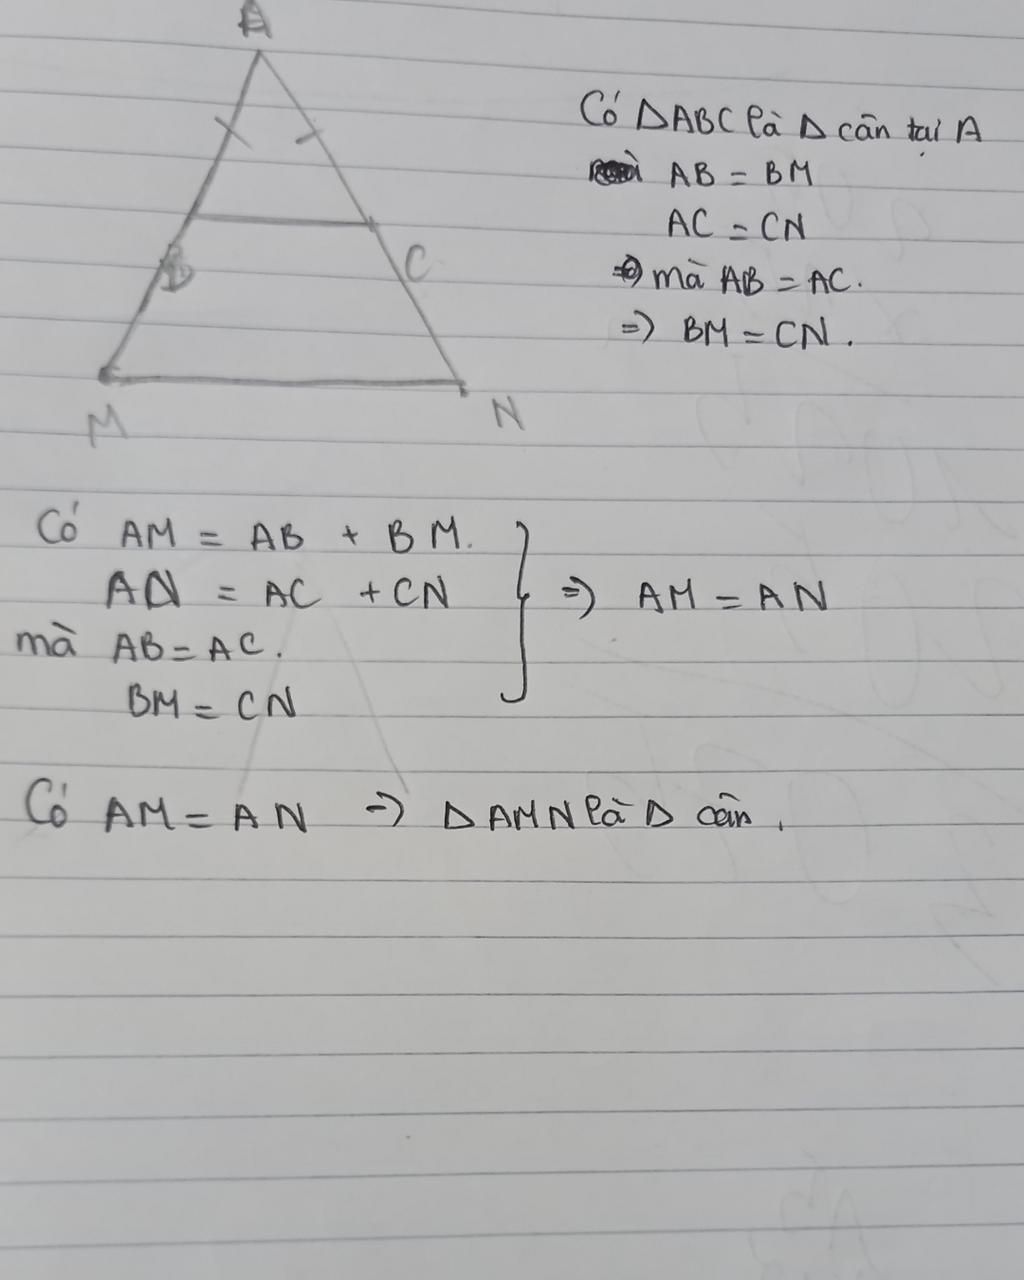 A
B
C
M
N
Có ΔABC là Δ cân tại A
AB = BM
AC = CN
mà AB = AC.
=> BM = CN.
Có AM = AB + BM.
AN = AC + CN
mà AB = AC.
BM = CN
} => AM = AN
Có AM = AN => Δ AMN là Δ cân.